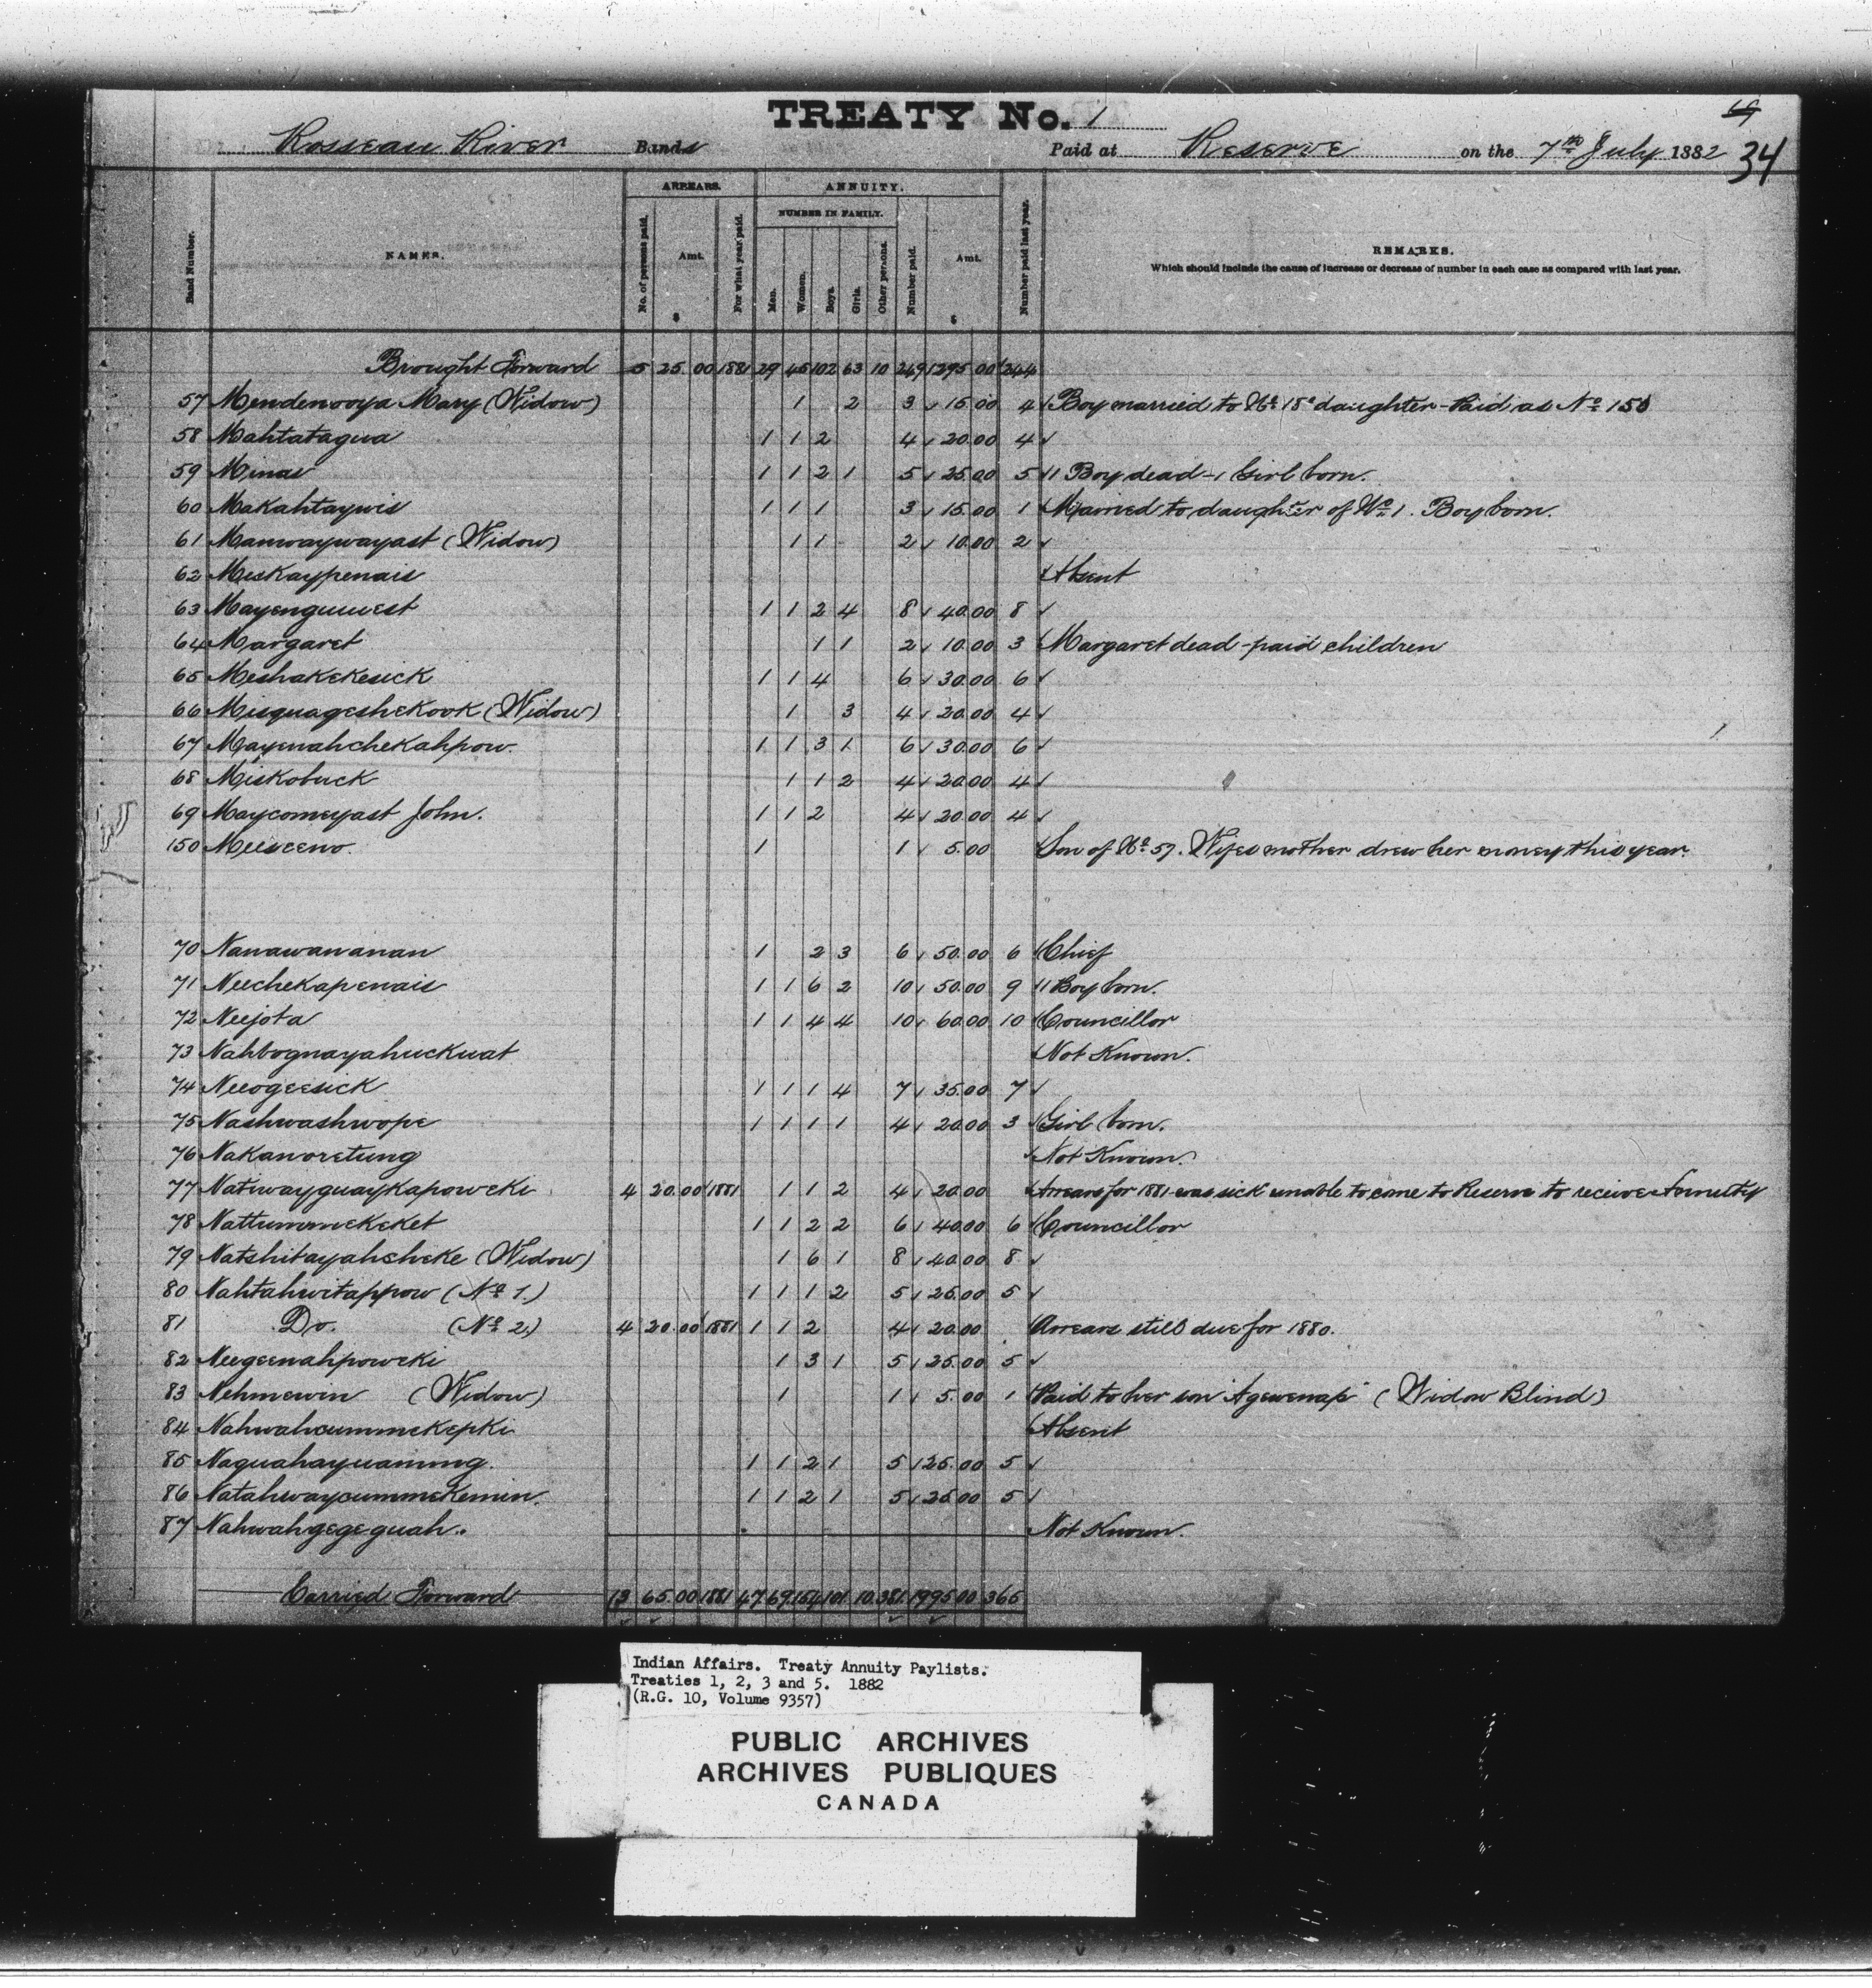 TREATY No. 1
69
Rosseau River Bands Paid at Reserve on the 7th July 1882 34
ARREARS. ANNUITY.
NUMBER IN FAMILY.
Band Number. NAMES. No. of persons paid. Amt. $ For what year paid. Men. Women. Boys. Girls. Other persons. Number paid. Amt. $ Number paid last year. REMARKS.
Which should include the cause of increase or decrease of number in each case as compared with last year.
Brought Forward 5 25 00 1881 29 45 102 63 10 249 1295 00 244
57 Mendenooya Mary (Widow) 1 2 3 15.00 4 Boy married to No 18s daughter - Paid as No 150
58 Mahtatagua 1 1 2 4 20.00 4
59 Minas 1 1 2 1 5 25.00 5 1 Boy dead - 1 Girl born.
60 Makahtaywis 1 1 1 3 15.00 1 Married to daughter of No 1. Boy born.
61 Manwaywayast (Widow) 1 1 2 10.00 2
62 Miskaypenais Absent
63 Mayenguuwest 1 1 2 4 8 40.00 8
64 Margaret 1 1 2 10.00 3 Margaret dead - paid children
65 Meshakekesick 1 1 4 6 30.00 6
66 Misquageshekook (Widow) 1 3 4 20.00 4
67 Mayenahchekahpow. 1 1 3 1 6 30.00 6
68 Miskobuck 1 1 2 4 20.00 4
69 Maycomeyast John. 1 1 2 4 20.00 4
150 Meesceno. 1 1 5.00 Son of No 57. Wifes mother drew her money this year.
70 Nanawananan 1 2 3 6 50.00 6 Chief
71 Neechekapenais 1 1 6 2 10 50.00 9 1 Boy born.
72 Neejota 1 1 4 4 10 60.00 10 Councillor
73 Nahbognayahuckwat Not Known.
74 Neeogeesick 1 1 1 4 7 35.00 7
75 Nashwashwope 1 1 1 1 4 20.00 3 Girl born.
76 Nakanoretung Not Known.
77 Natiwayguaykapoweki 4 20.00 1881 1 1 2 4 20.00 Arrears for 1881 was sick unable to come to Reserve to receive Annuity
78 Nattummekeket 1 1 2 2 6 40.00 6 Councillor
79 Natshitayahsheke (Widow) 1 6 1 8 40.00 8
80 Nahtahwitappow (No 1.) 1 1 1 2 5 25.00 5
81 Do. (No 2.) 4 20.00 1881 1 1 2 4 20.00 Arrears still due for 1880.
82 Neegeenahpoweki 1 3 1 5 25.00 5
83 Nehmewin (Widow) 1 1 5.00 1 Paid to her son "Agewenap" (Widow Blind)
84 Nahwahcummekepki Absent
85 Naguahayuaming. 1 1 2 1 5 25.00 5
86 Natahwaycummekemin. 1 1 2 1 5 25.00 5
87 Nahwahgegeguah. Not Known.
Carried Forward 13 65.00 1881 47 69 154 101 10 381 1995.00 365
Indian Affairs. Treaty Annuity Paylists.
Treaties 1, 2, 3 and 5. 1882
(R.G. 10, Volume 9357)
PUBLIC ARCHIVES
ARCHIVES PUBLIQUES
CANADA